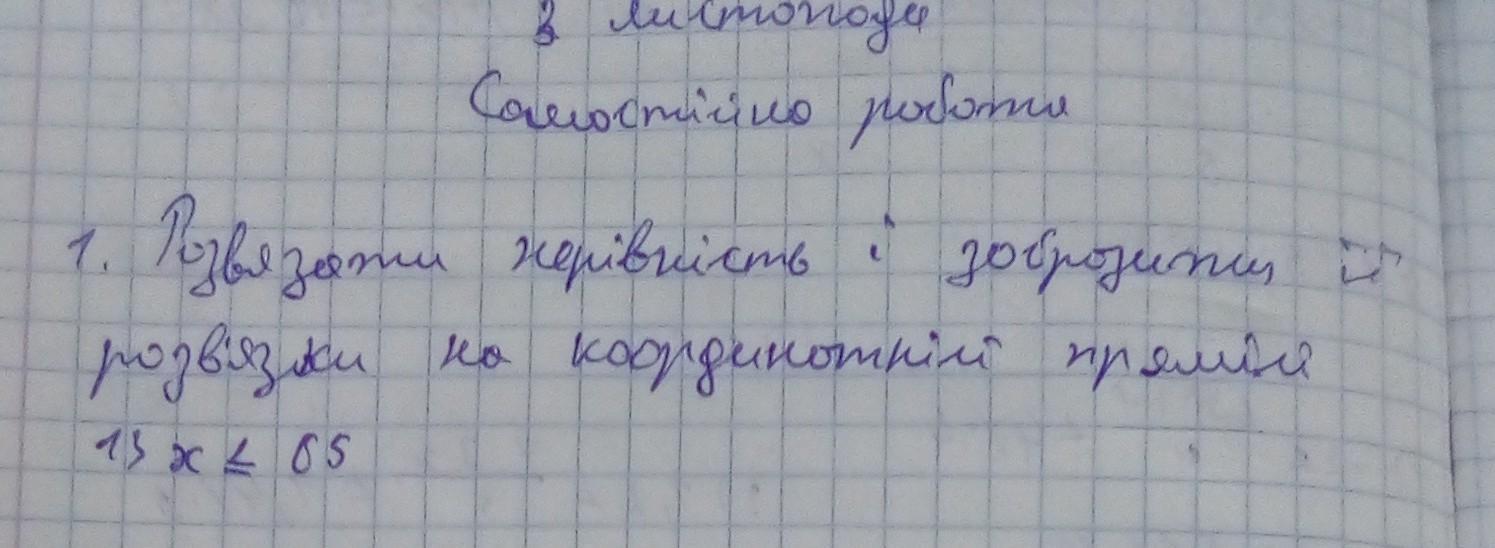 3 листопада
Самостійна робота
1. Розвязати нерівність і зобразити її
розв'язки на координатній прямій
13 x ≤ 65